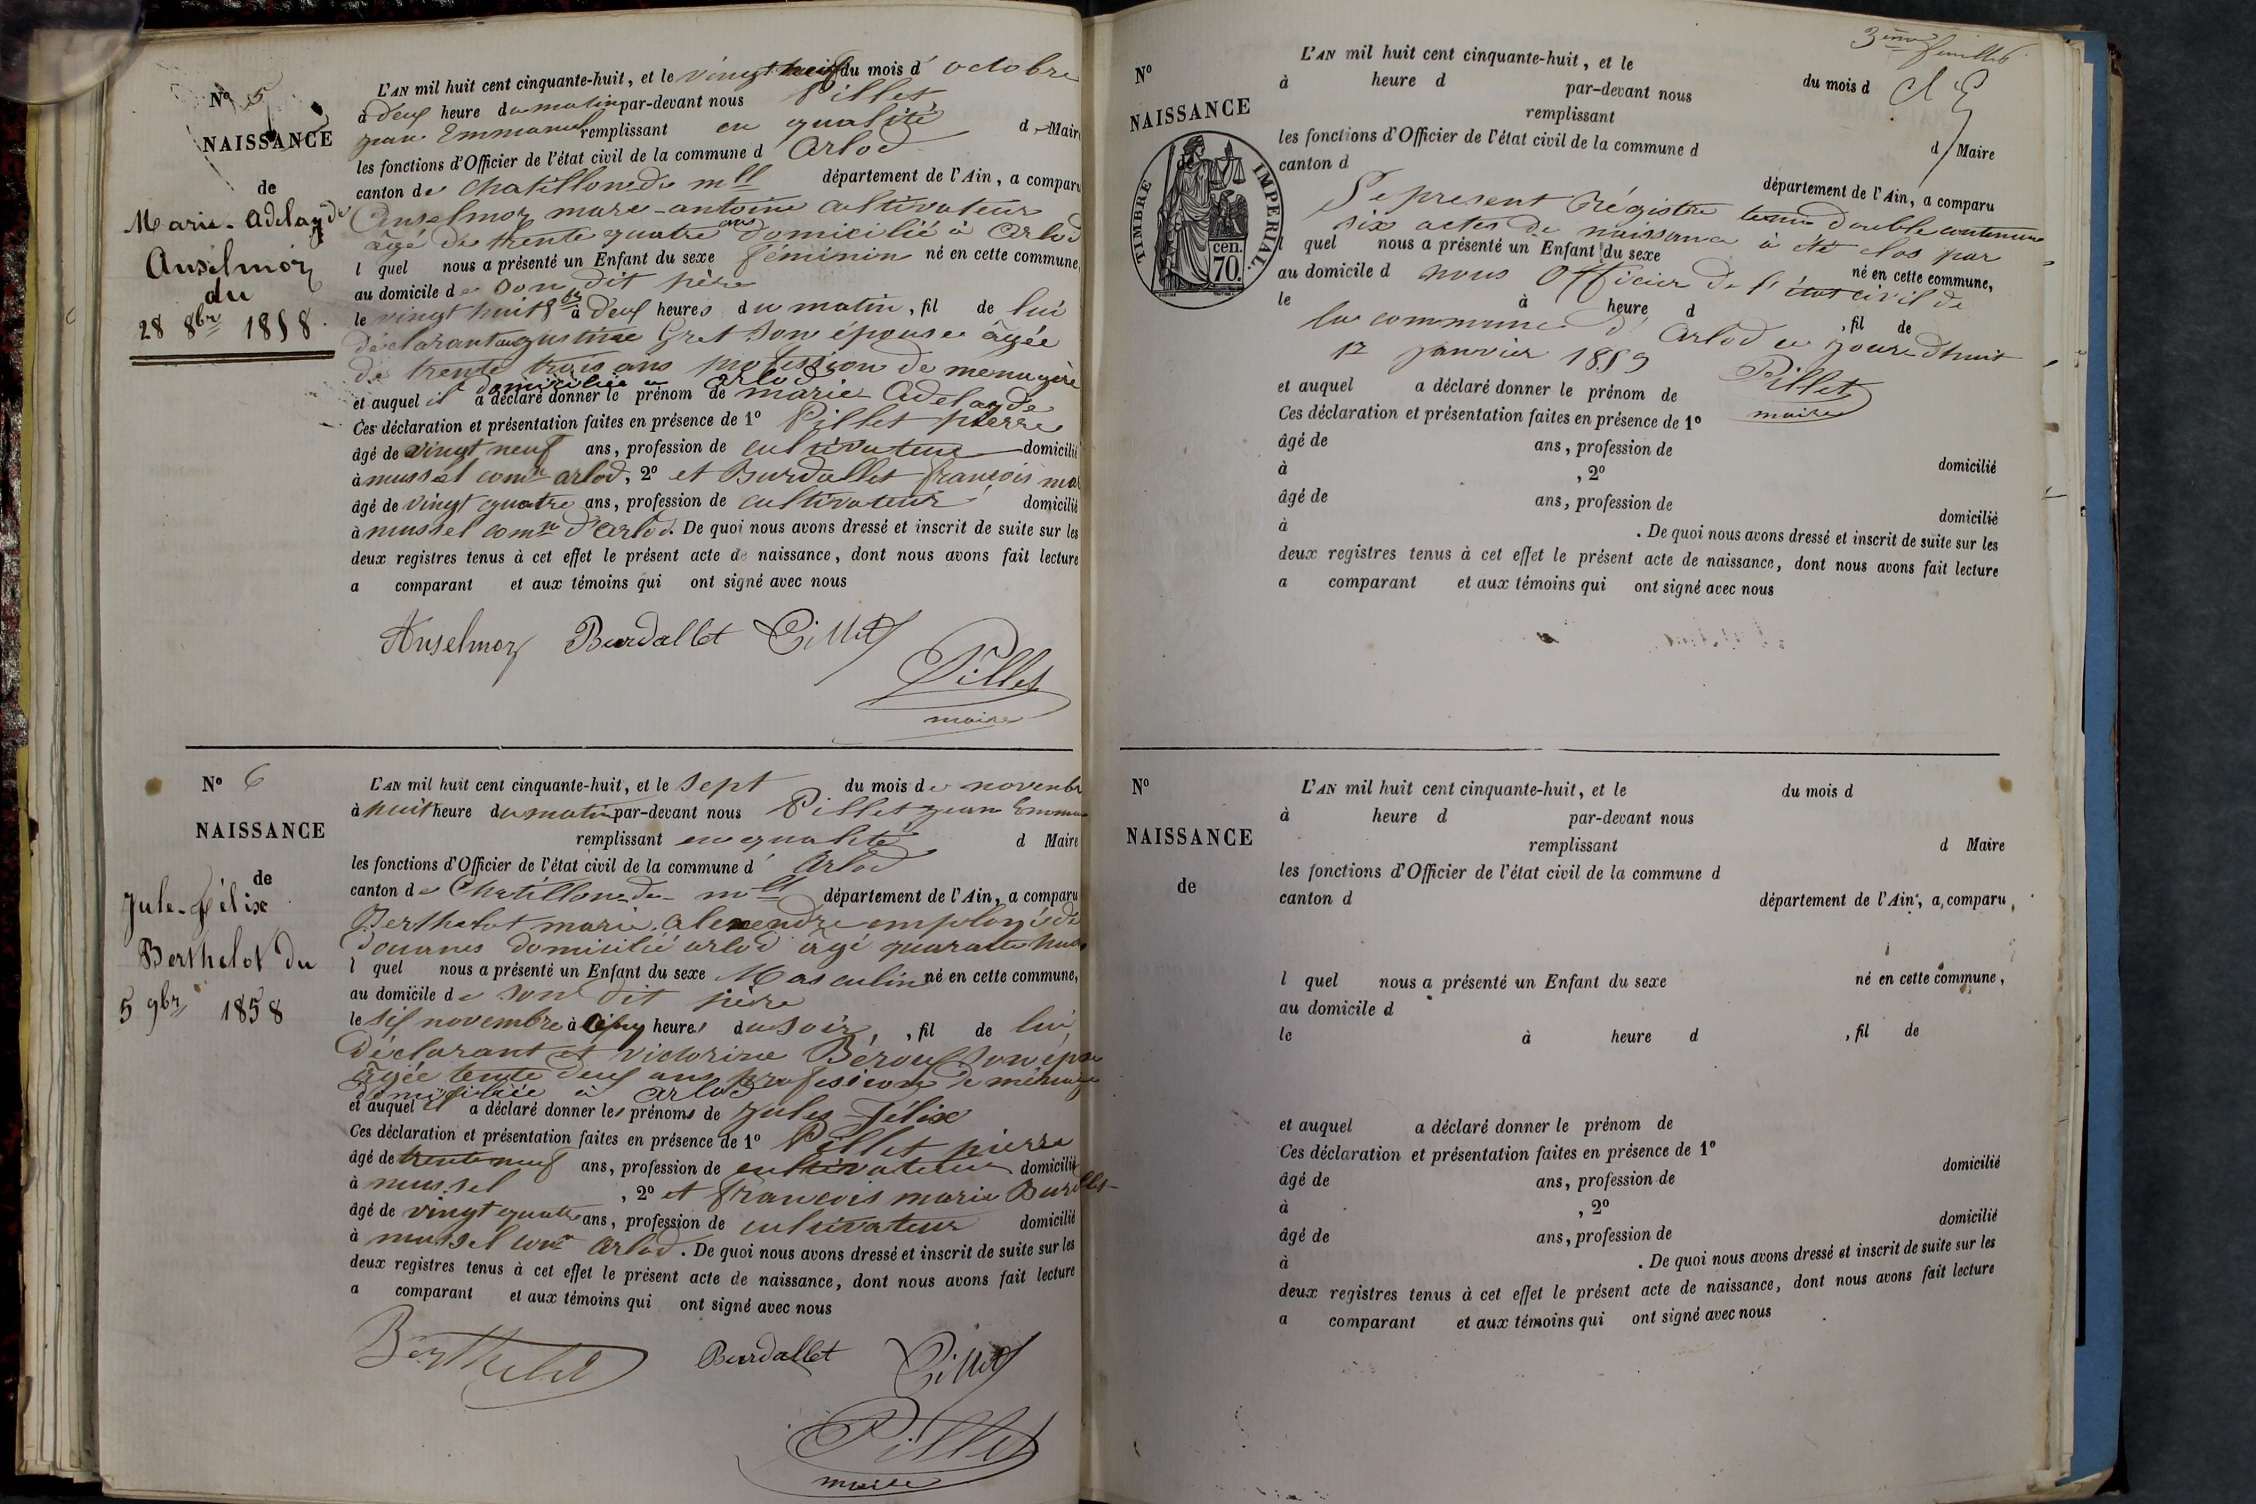 N° 5
NAISSANCE
de
Marie-Adelayde
Anselmoz
du
28 8bre 1858.
L'AN mil huit cent cinquante-huit, et le vingt huit du mois d'octobre
à deux heure du matin par-devant nous Pillet
jean Emmanuel remplissant en qualité d Maire
les fonctions d'Officier de l'état civil de la commune d Arlod
canton de Chatillon de mlle département de l'Ain, a comparu
Anselmoz marc-antoine cultivateur
âgé de trente quatre ans domicilié à Arlod
l quel nous a présenté un Enfant du sexe féminin né en cette commune,
au domicile de Son dit père
le vingt huit 8bre à deux heures du matin, fil de lui
déclarant et justine Gret son épouse âgée
de trente trois ans profession de menagère
domiciliée à arlod
et auquel il a déclaré donner le prénom de marie Adelayde
Ces déclaration et présentation faites en présence de 1° Pillet pierre
âgé de vingt neuf ans, profession de cultivateur domicilié
à mussel comne arlod, 2° et Burdallet françois mar
âgé de vingt quatre ans, profession de cultivateur domicilié
à mussel comne d'arlod. De quoi nous avons dressé et inscrit de suite sur les
deux registres tenus à cet effet le présent acte de naissance, dont nous avons fait lecture
a comparant et aux témoins qui ont signé avec nous
Anselmoz Burdallet Pillet
Pillet
maire
N° 6
NAISSANCE
de
Jule-félix
Berthelot du
5 9bre 1858
L'AN mil huit cent cinquante-huit, et le sept du mois de novembre
à huit heure du matin par-devant nous Pillet jean Emman
remplissant en qualité d Maire
les fonctions d'Officier de l'état civil de la commune d' Arlod
canton de Chatillon de mlle département de l'Ain, a comparu
Berthelot marie alexendre employé de
Douanes domicilié arlod âgé quarante huit
l quel nous a présenté un Enfant du sexe Masculin né en cette commune,
au domicile de Son dit père
le six novembre à cinq heures du soir, fil de lui
déclarant et victorine Béroux son épse
âgée tente deux ans profession de ménage
domiciliée à arlod
et auquel il a déclaré donner les prénoms de jules félix
Ces déclaration et présentation faites en présence de 1° Pillet pierre
âgé de trente neuf ans, profession de cultivateur domicilié
à mussel, 2° et françois marie Burdlls
âgé de vingt quatre ans, profession de cultivateur domicilié
à mussel comne arlod. De quoi nous avons dressé et inscrit de suite sur les
deux registres tenus à cet effet le présent acte de naissance, dont nous avons fait lecture
a comparant et aux témoins qui ont signé avec nous
Berthelot Burdallet Pillet
Pillet
maire
3ème feuillet
N°
NAISSANCE
de
TIMBRE IMPERIAL.
70 cen.
L'AN mil huit cent cinquante-huit, et le du mois d
à heure d par-devant nous
remplissant d Maire
les fonctions d'Officier de l'état civil de la commune d
canton d département de l'Ain, a comparu
Le present Régistre tenu double contenant
six actes de naissance à été clos par
l quel nous a présenté un Enfant du sexe né en cette commune,
au domicile d
nous Officier de l'état civil de
le à heure d , fil de
la commune d'Arlod ce jourd'huit
12 janvier 1859
Pillet
maire
et auquel a déclaré donner le prénom de
Ces déclaration et présentation faites en présence de 1°
âgé de ans, profession de domicilié
à , 2°
âgé de ans, profession de domicilié
à . De quoi nous avons dressé et inscrit de suite sur les
deux registres tenus à cet effet le présent acte de naissance, dont nous avons fait lecture
a comparant et aux témoins qui ont signé avec nous
N°
NAISSANCE
de
L'AN mil huit cent cinquante-huit, et le du mois d
à heure d par-devant nous
remplissant d Maire
les fonctions d'Officier de l'état civil de la commune d
canton d département de l'Ain, a comparu
l quel nous a présenté un Enfant du sexe né en cette commune,
au domicile d
le à heure d , fil de
et auquel a déclaré donner le prénom de
Ces déclaration et présentation faites en présence de 1°
âgé de ans, profession de domicilié
à , 2°
âgé de ans, profession de domicilié
à . De quoi nous avons dressé et inscrit de suite sur les
deux registres tenus à cet effet le présent acte de naissance, dont nous avons fait lecture
a comparant et aux témoins qui ont signé avec nous